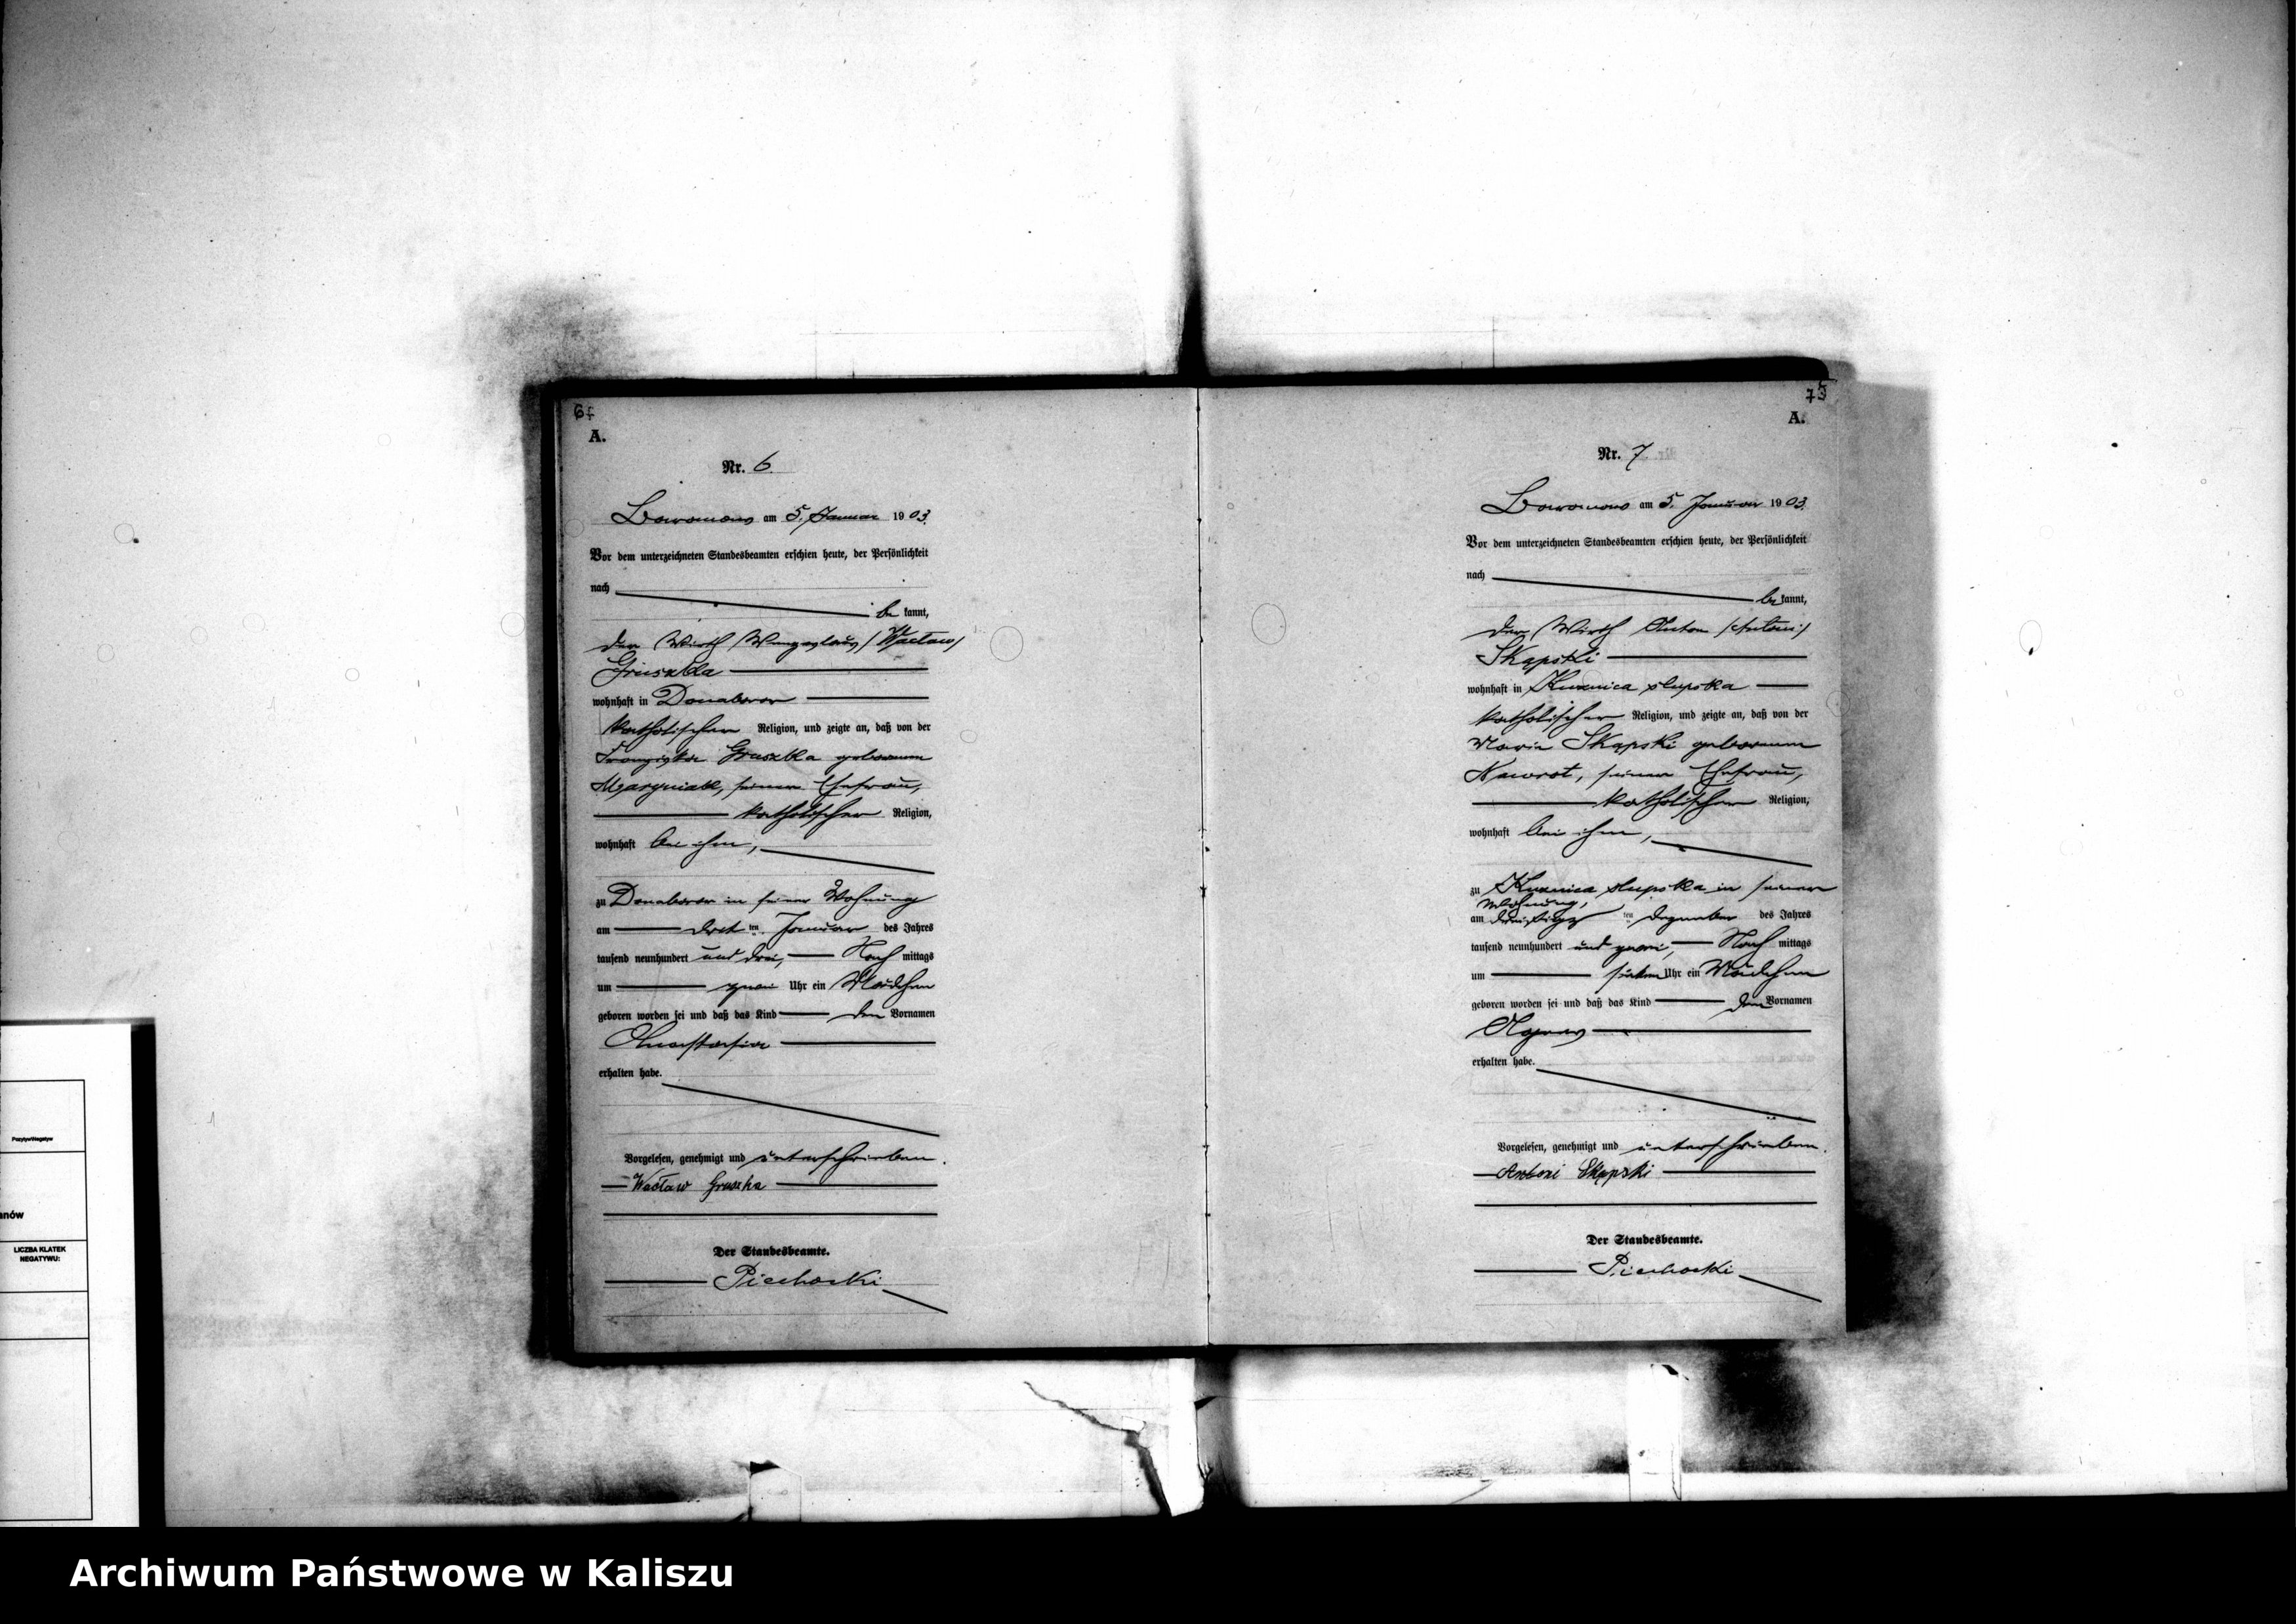 6
A.
Nr. 6.
Baranow am 5. Januar 1903.
Vor dem unterzeichneten Standesbeamten erschien heute, der Persönlichkeit
nach
be kannt,
der Wirth Wenzeslaus /Wacław/
Gruszka
wohnhaft in Donaborow
katholischer Religion, und zeigte an, daß von der
Franziska Gruszka geborenen
seiner Ehefrau,
katholischer Religion,
wohnhaft bei ihm,
zu Donaborow in seiner Wohnung
am dritten Januar des Jahres
tausend neunhundert und drei, Nach mittags
um zwei Uhr ein Mädchen
geboren worden sei und daß das Kind den Vornamen
Anastasia
erhalten habe.
Vorgelesen, genehmigt und unterschrieben.
Wacław Gruszka
Der Standesbeamte.
Piechocki
7
A.
Nr. 7
Baranow am 5. Januar 1903.
Vor dem unterzeichneten Standesbeamten erschien heute, der Persönlichkeit
nach
be kannt,
der Wirth Anton /Antoni/
Skąpski
wohnhaft in Kuznica słupska
katholischer Religion, und zeigte an, daß von der
Maria Skąpski geborenen
Nawrot, seiner Ehefrau,
katholischer Religion,
wohnhaft bei ihm,
zu Kuznica słupska in seiner
Wohnung,
am dreißigsten Dezember des Jahres
tausend neunhundert und zwei, Nach mittags
um sieben Uhr ein Mädchen
geboren worden sei und daß das Kind den Vornamen
Agnes
erhalten habe.
Vorgelesen, genehmigt und unterschrieben.
Antoni Skąpski
Der Standesbeamte.
Piechocki
Pozytyw/Negatyw
anów
LICZBA KLATEK
NEGATYWU:
Archiwum Państwowe w Kaliszu